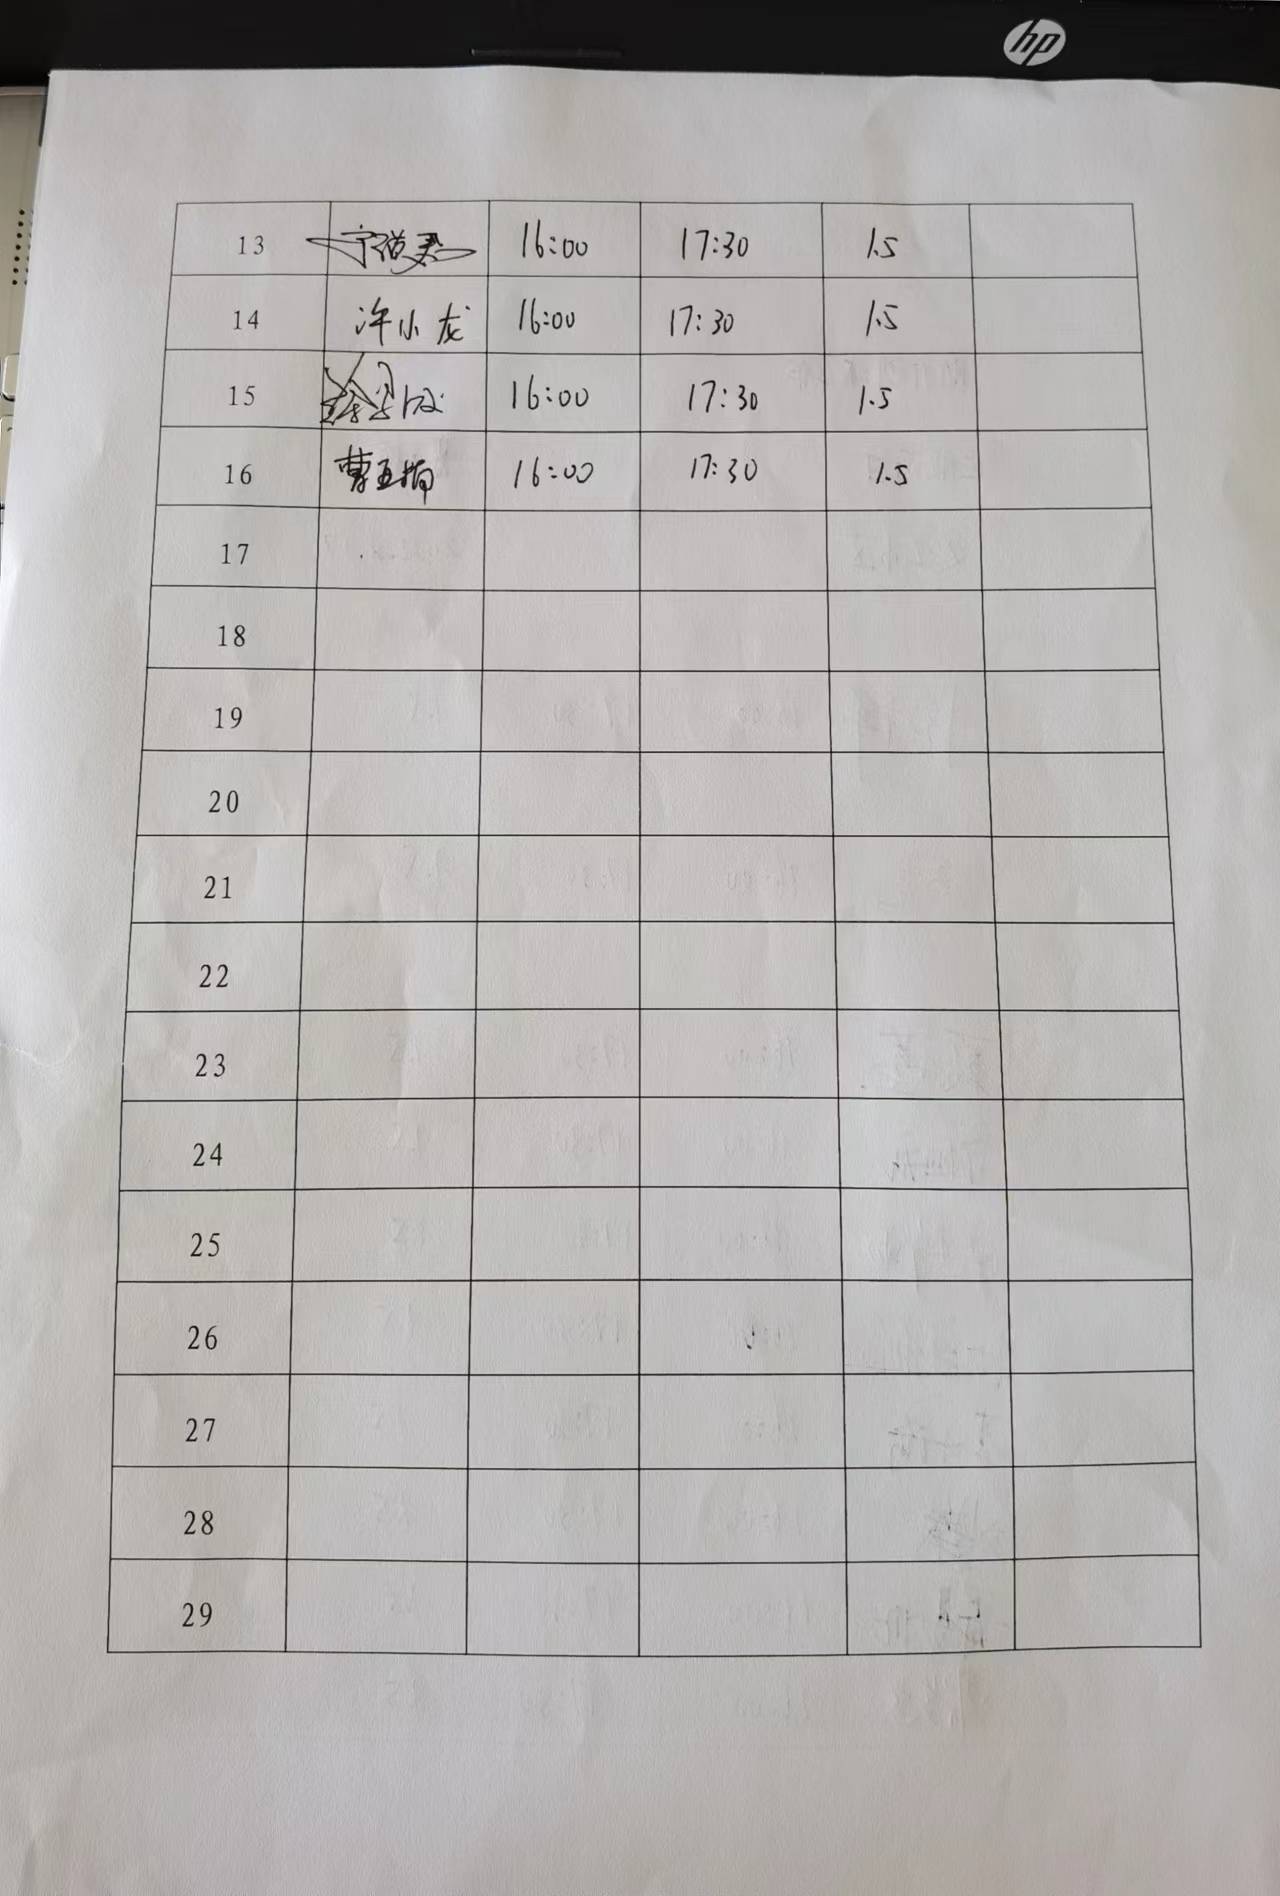 hp
13 16:00 17:30 1.5
14 许小龙 16:00 17:30 1.5
15 16:00 17:30 1.5
16 曹亚楠 16:00 17:30 1.5
17
18
19
20
21
22
23
24
25
26
27
28
29